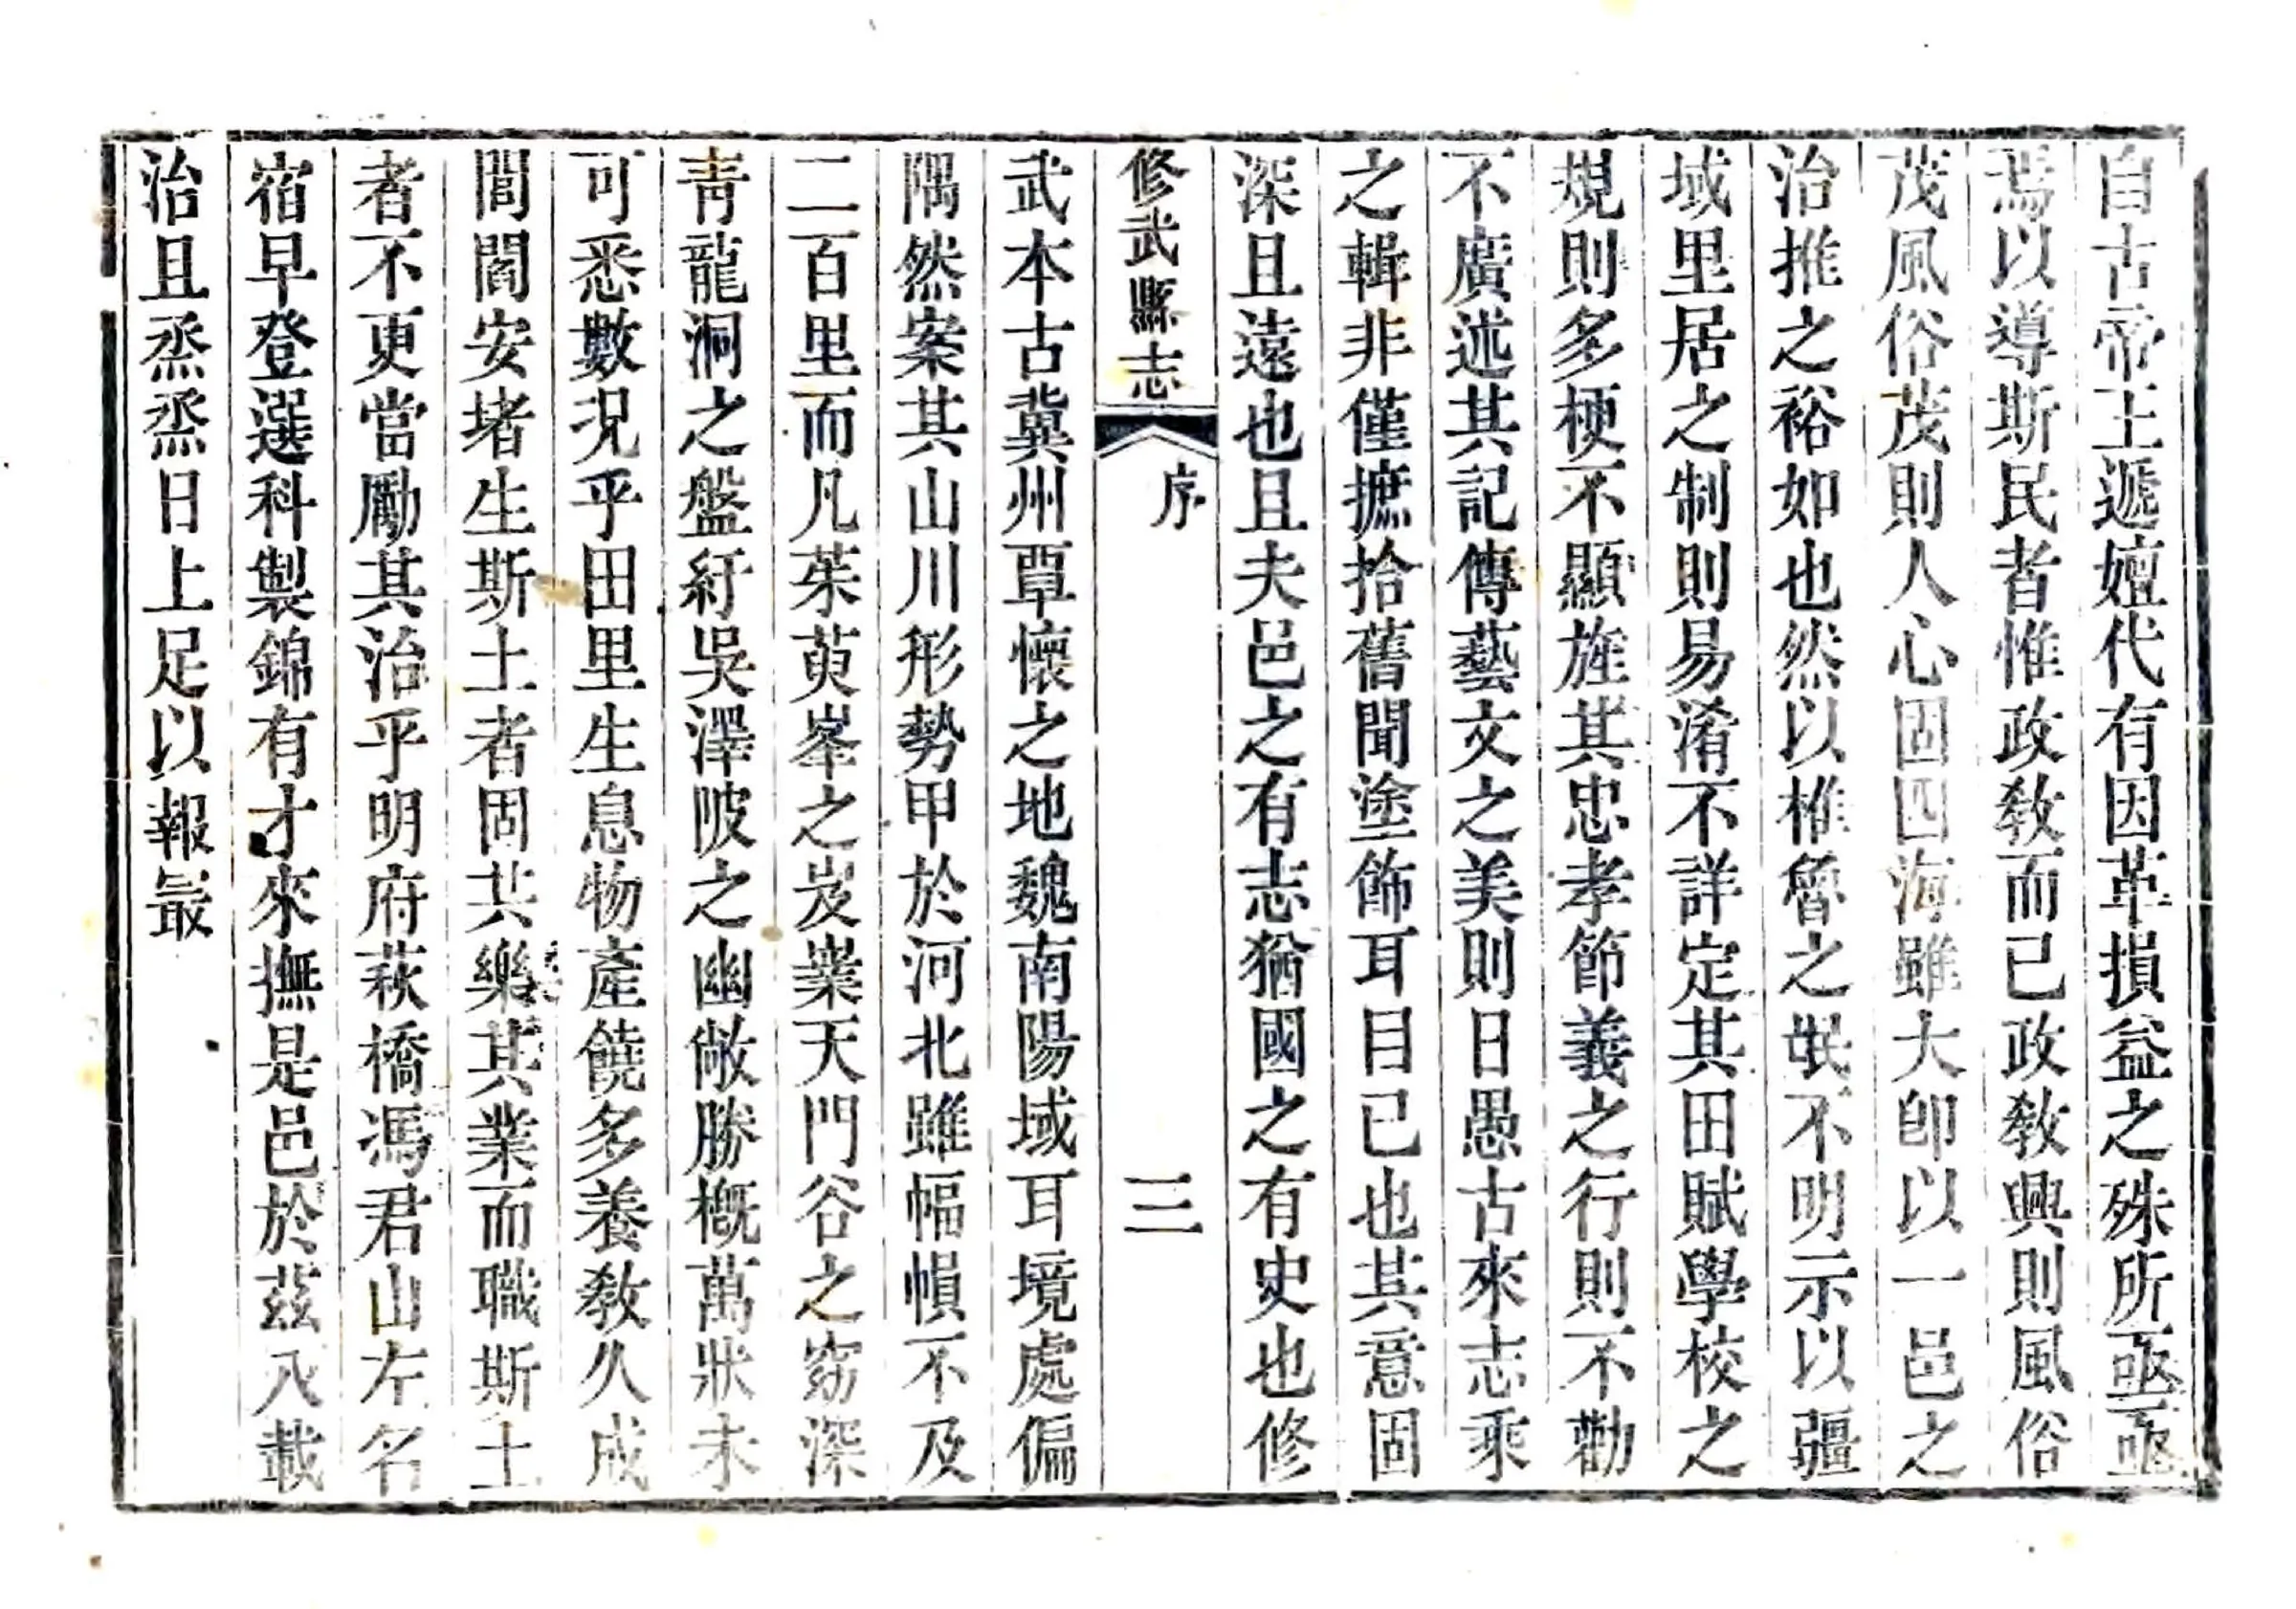 自古帝王遞嬗代有因革損益之殊所亟亟
焉以導斯民者惟政敎而已政敎興則風俗
茂風俗茂則人心固四海雖大卽以一邑之
治推之裕如也然以椎魯之氓不明示以疆
域里居之制則易淆不詳定其田賦學校之
規則多梗不顯旌其忠孝節義之行則不勸
不廣述其記傳藝文之美則日愚古來志乘
之輯非僅摭拾舊聞塗飾耳目已也其意固
深且遠也且夫邑之有志猶國之有史也修
修武縣志
序
三
武本古冀州覃懷之地魏南陽域耳境處偏
隅然案其山川形勢甲於河北雖幅幀不及
二百里而凡茱萸峯之岌嶪天門谷之窈深
靑龍洞之盤紆吳澤陂之幽敞勝槪萬狀未
可悉數況乎田里生息物產饒多養敎久成
閭閻安堵生斯土者固共樂其業而職斯土
者不更當勵其治乎明府萩橋馮君山左名
宿早登選科製錦有才來撫是邑於茲八載
治且烝烝日上足以報最